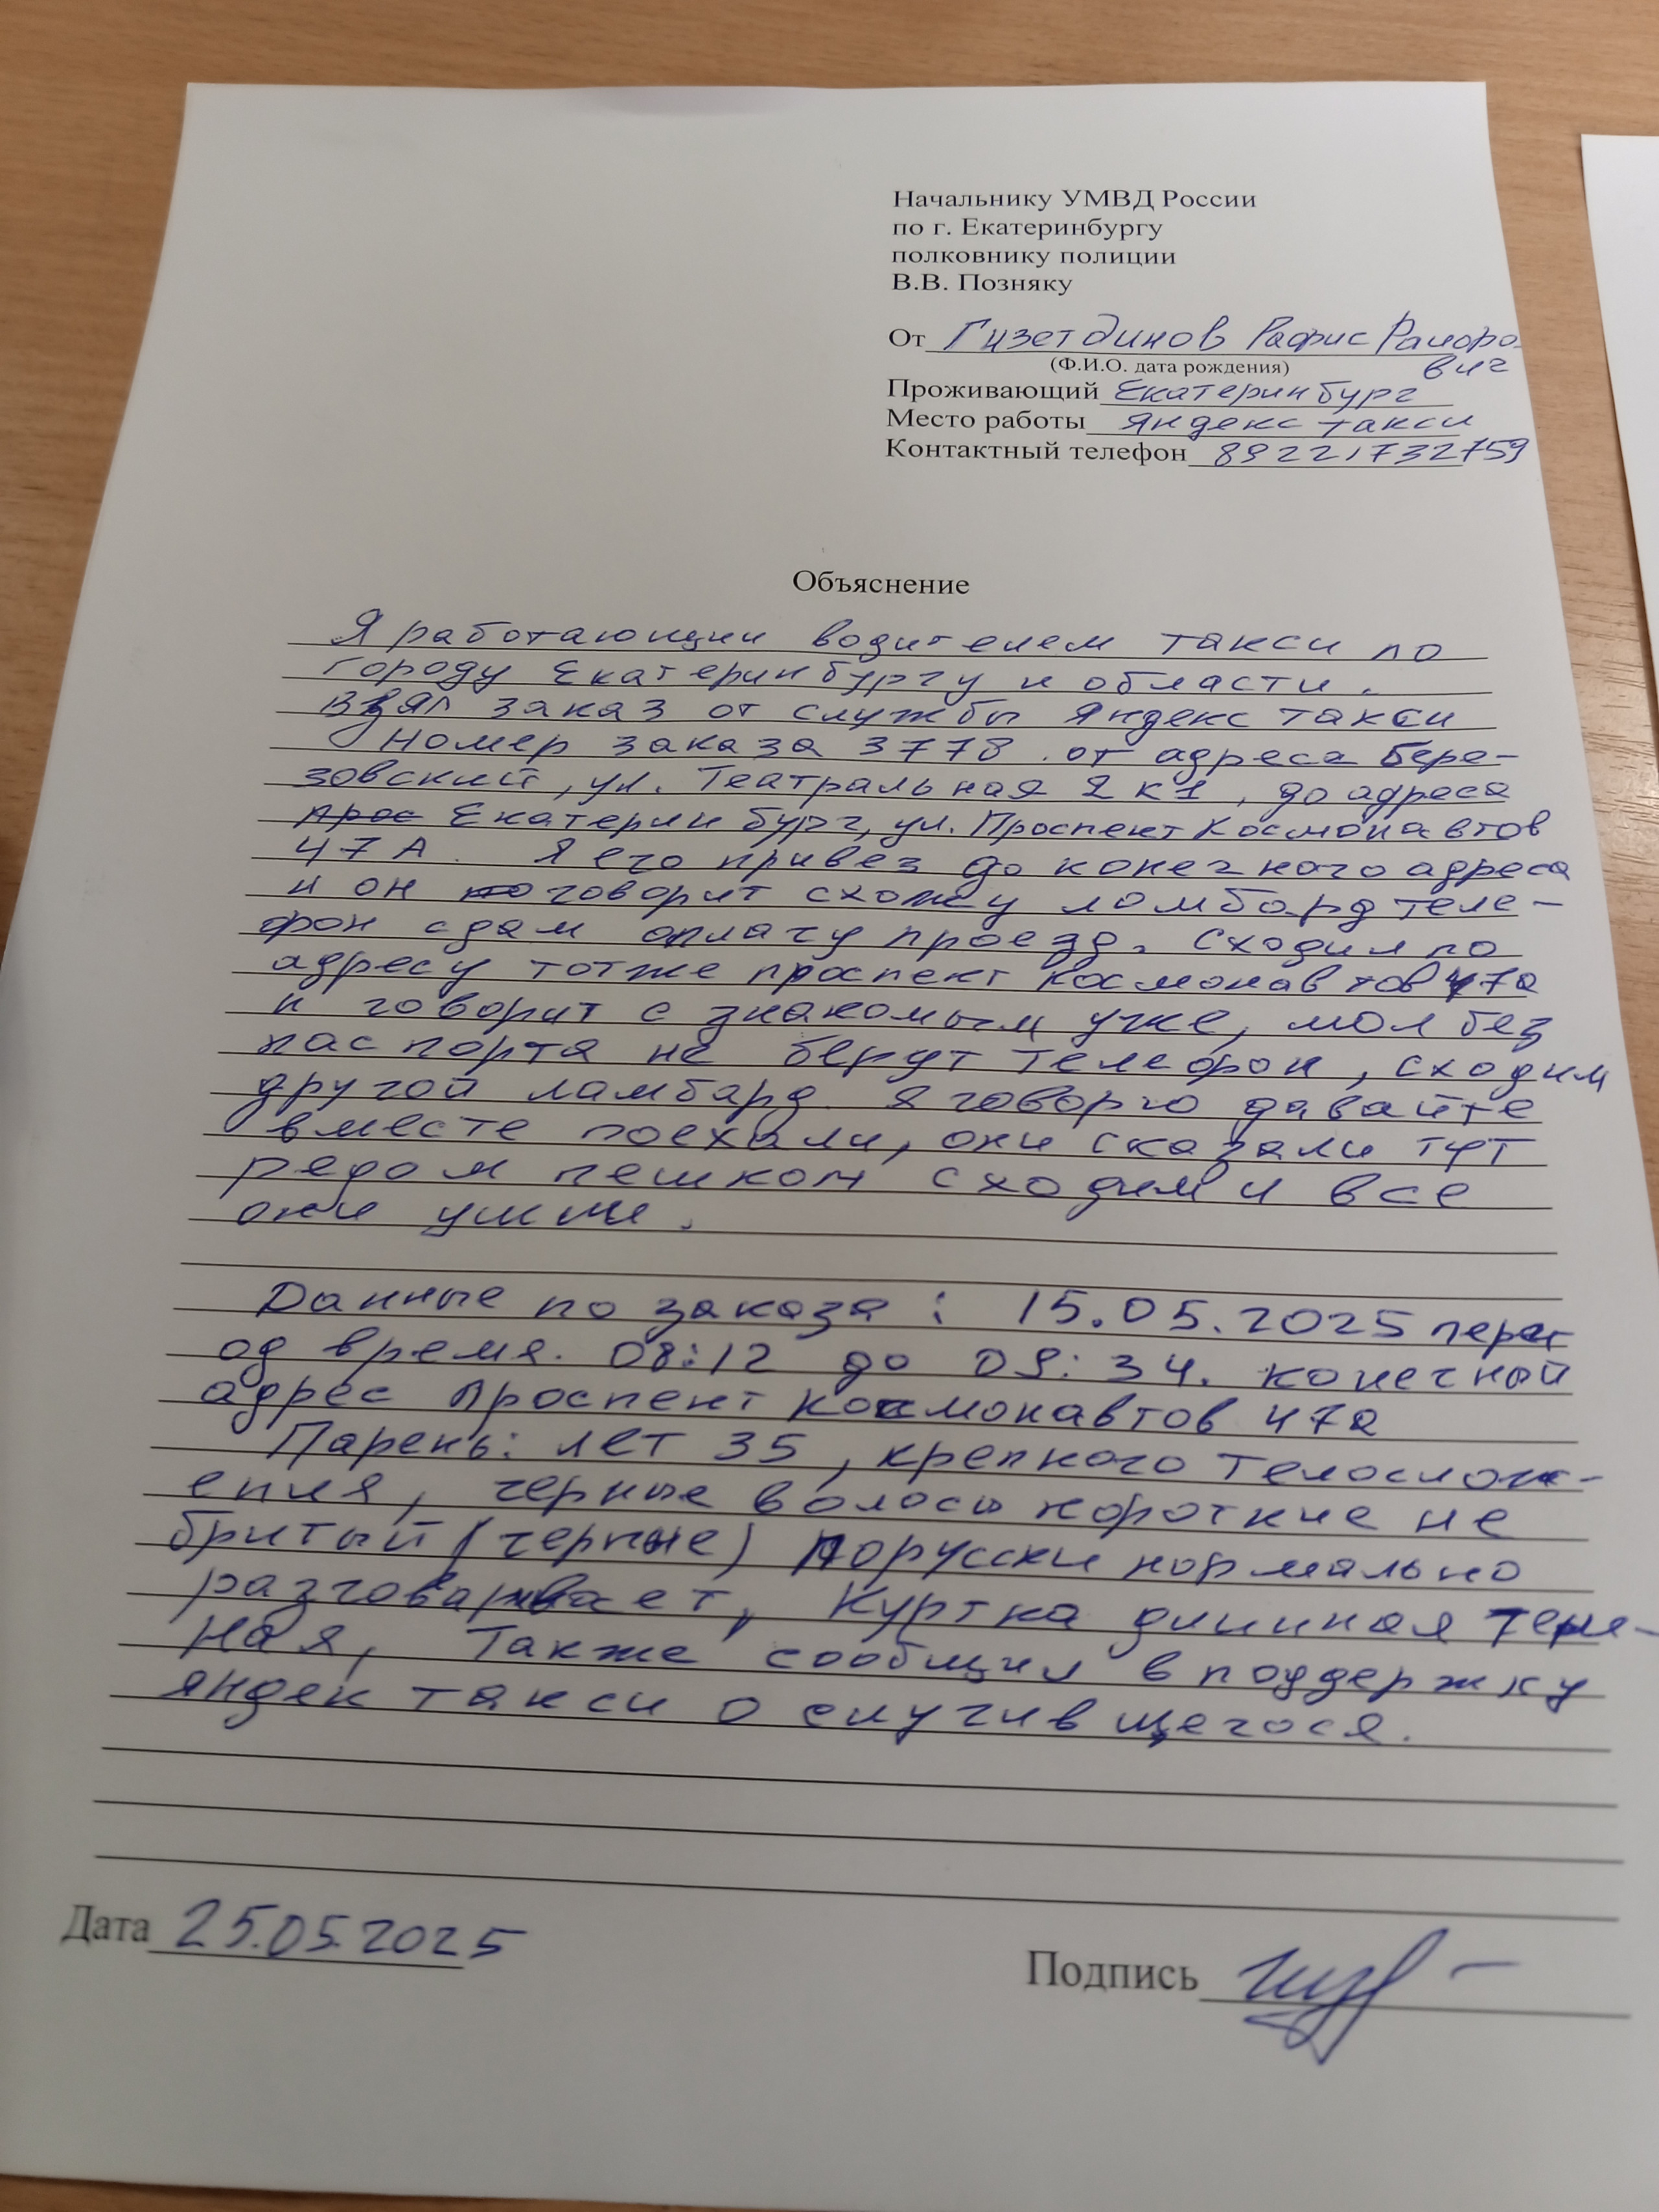 Начальнику УМВД России
по г. Екатеринбургу
полковнику полиции
В.В. Позняку
От Гизетдинов Рафис
(Ф.И.О. дата рождения) вич
Проживающий Екатеринбург
Место работы Яндекс такси
Контактный телефон 89221732759
Объяснение
Я работающии водителем такси по
городу Екатеринбургу и области.
взял заказ от службы Яндекс такси
номер заказа 3778. от адреса Бере-
зовский, ул. Театральная 2 к1, до адреса
прос Екатеринбург, ул. Проспект Космонавтов
47 А. Я его привёз до конечного адреса
и он говорит схожу ломбард теле-
фон сдам оплачу проезд. Сходил по
адресу тотже проспект космонавтов 47а
и говорит с знакомым уже, мол без
паспорта не берут телефон, сходим
другой ламбард. Я говорю давайте
вместе поехали, они сказали тут
редом пешком сходим и все
они ушли.
Данные по заказа: 15.05.2025 пери
од время. 08:12 до 09:34. конечный
адрес проспект космонавтов 47а
Парень: лет 35, крепкого телослож-
ения, черные волосы короткие не
бритый (черные) порусски нормально
разговаривает, Куртка длинная тём-
ная, Также сообщил в поддержку
яндек такси о случившегося.
Дата 25.05.2025
Подпись